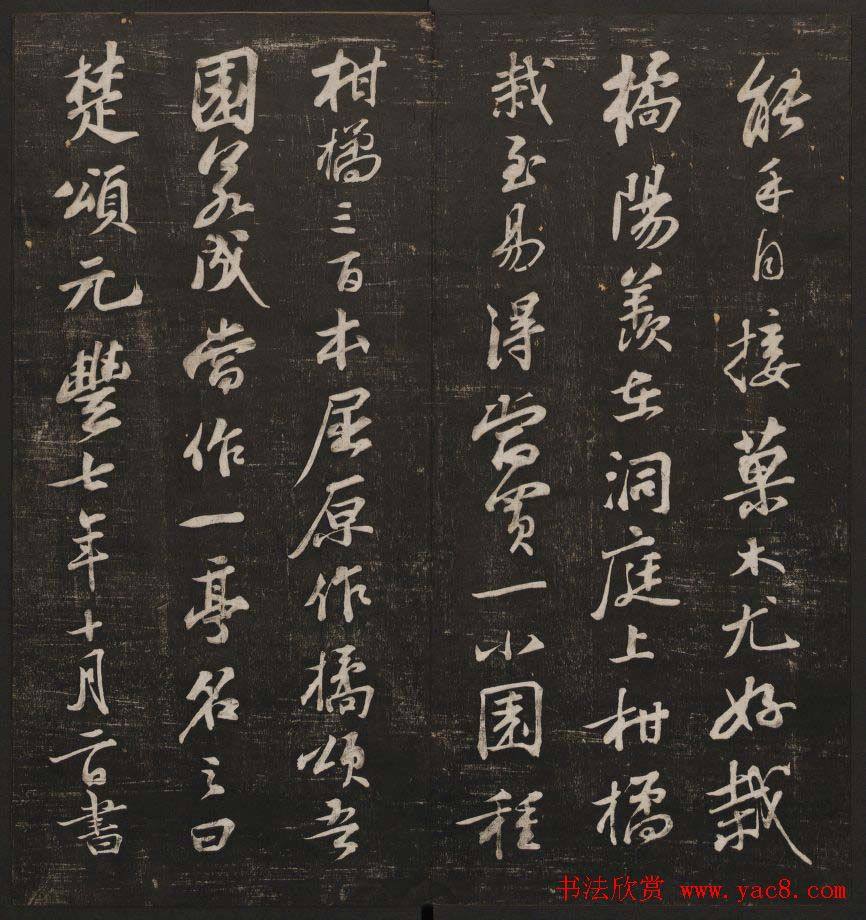 能手自接菓木尤好栽
橘陽羨在洞庭上柑橘
栽至易得當買一小園種
柑橘三百本屈原作橘頌吾
園若成當作一亭名之曰
楚頌元豐七年十月二日書
书法欣赏 www.yac8.com